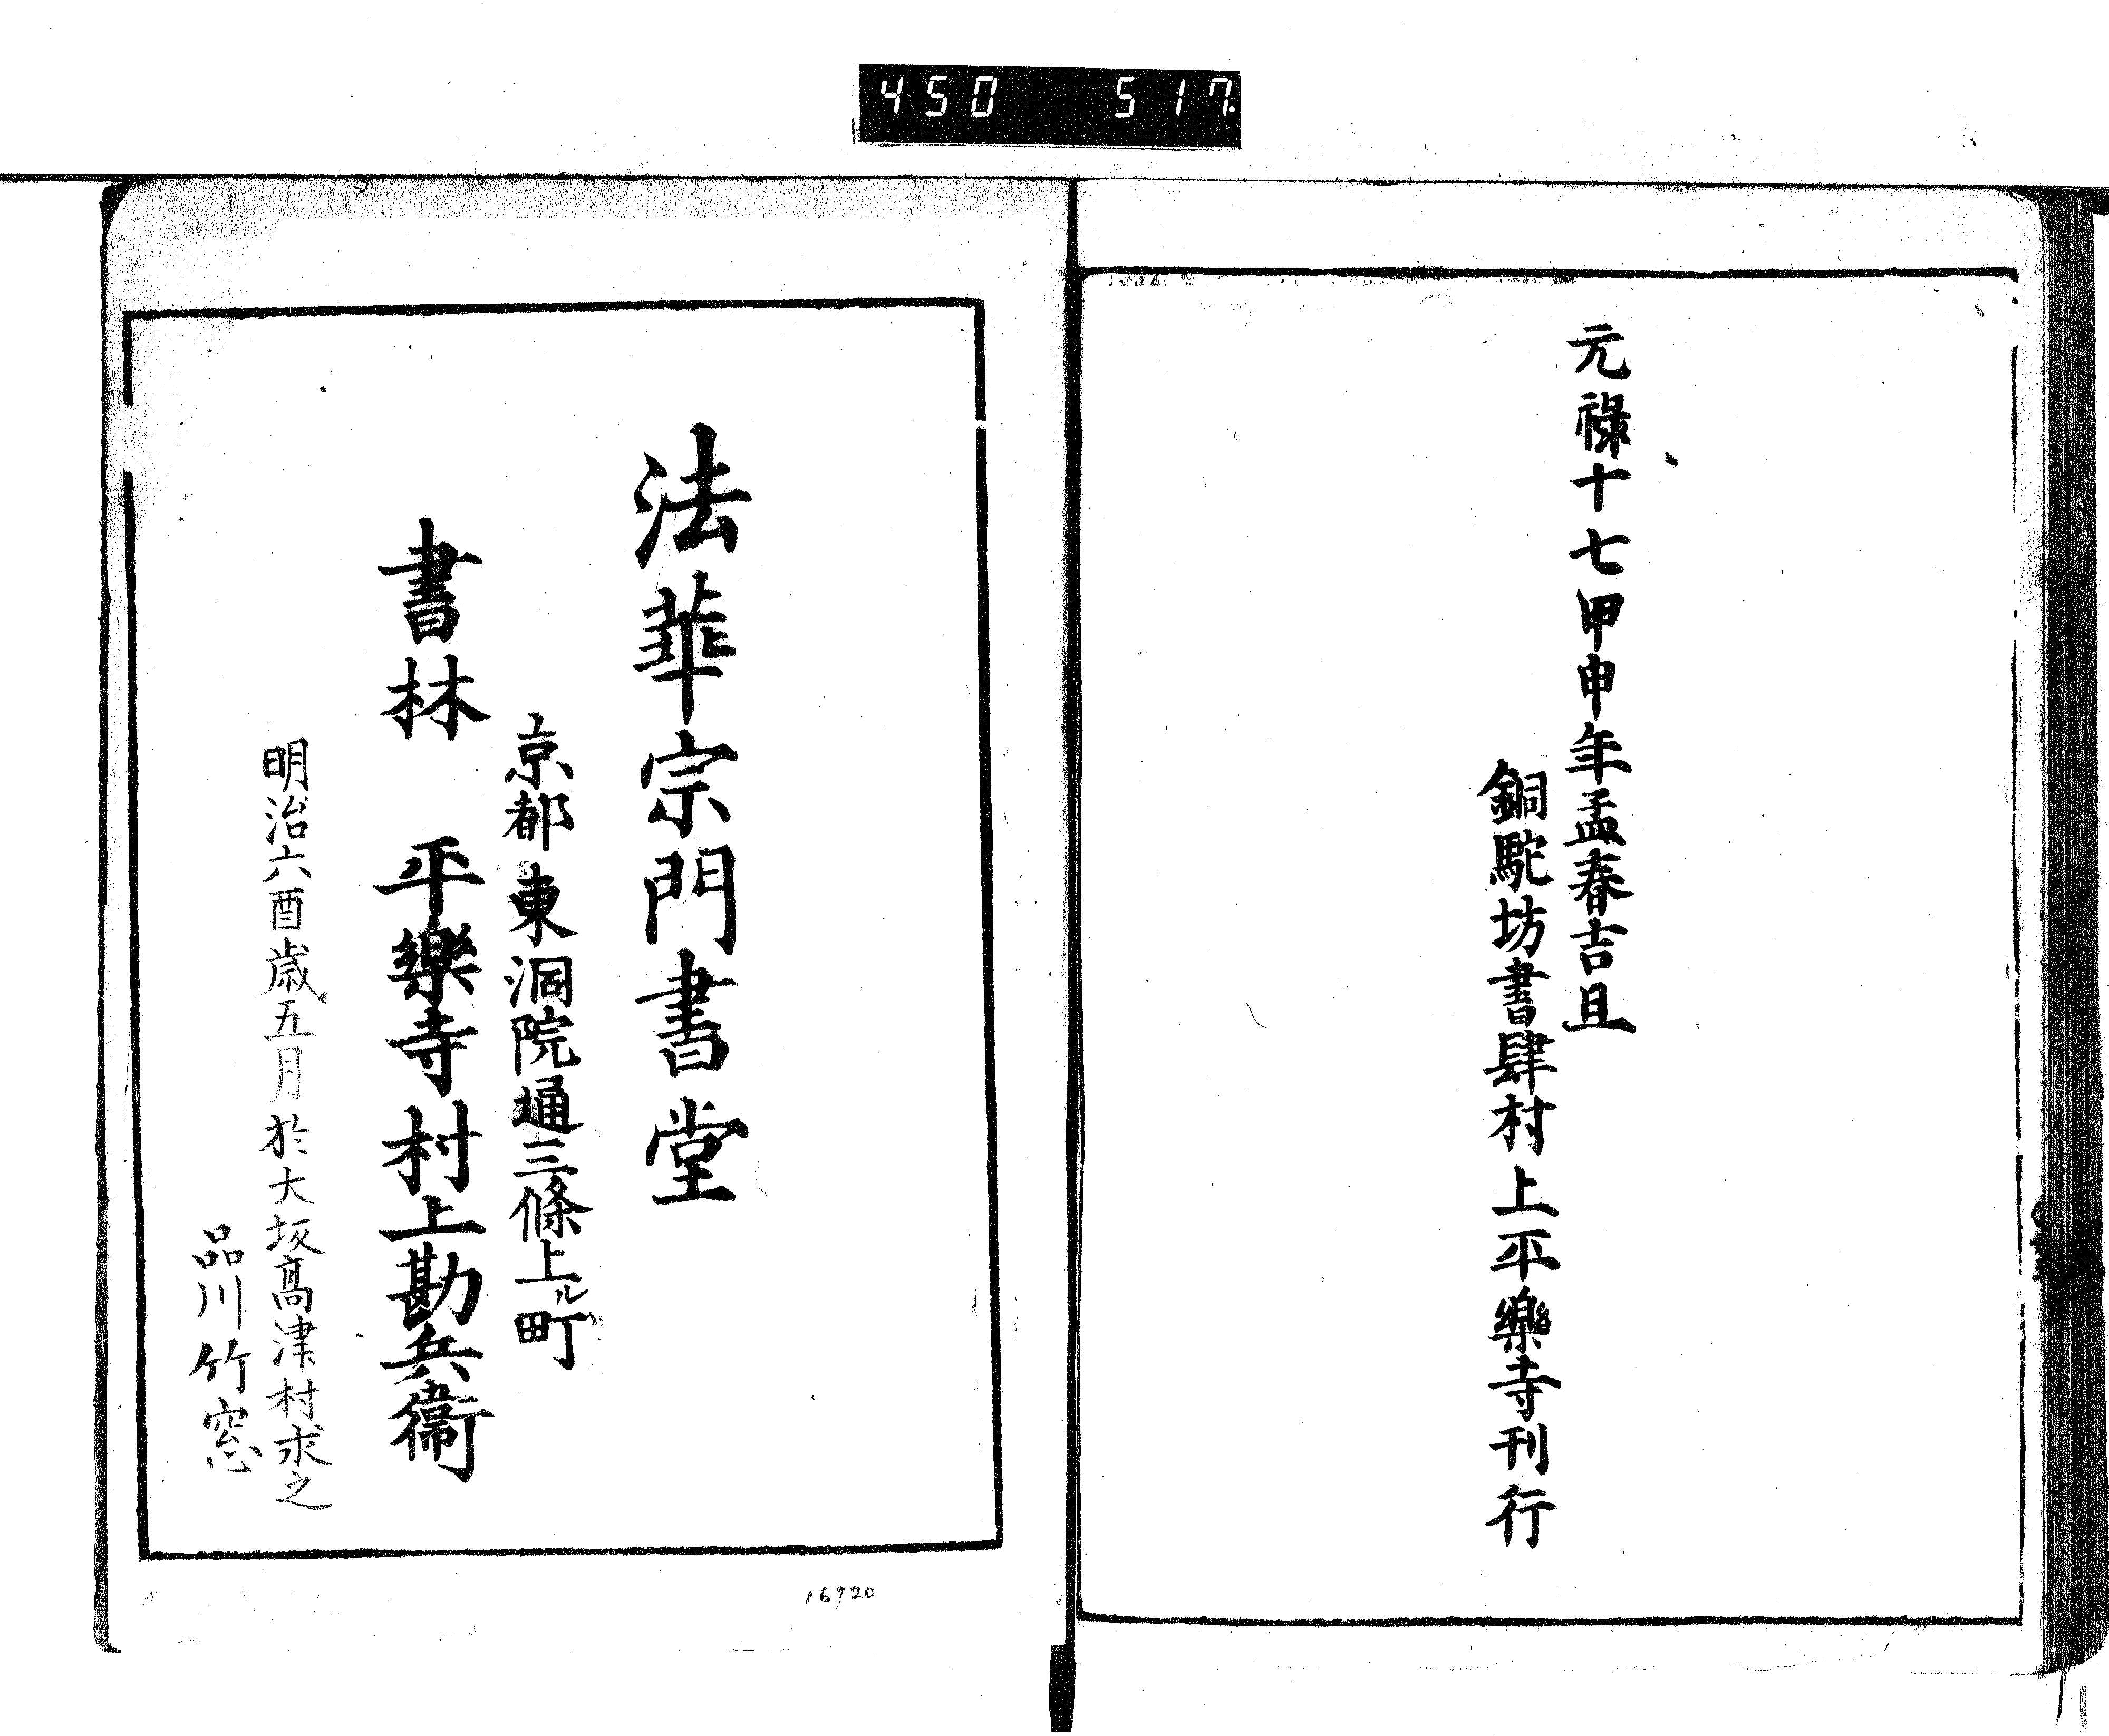 450 517.
元禄十七甲申年孟春吉旦
銅駝坊書肆村上平樂寺刊行
法華宗門書堂
京都東洞院通三條上ル町
書林 平樂寺村上勘兵衞
明治六酉歳五月於大坂髙津村求之
品川竹窓
16920